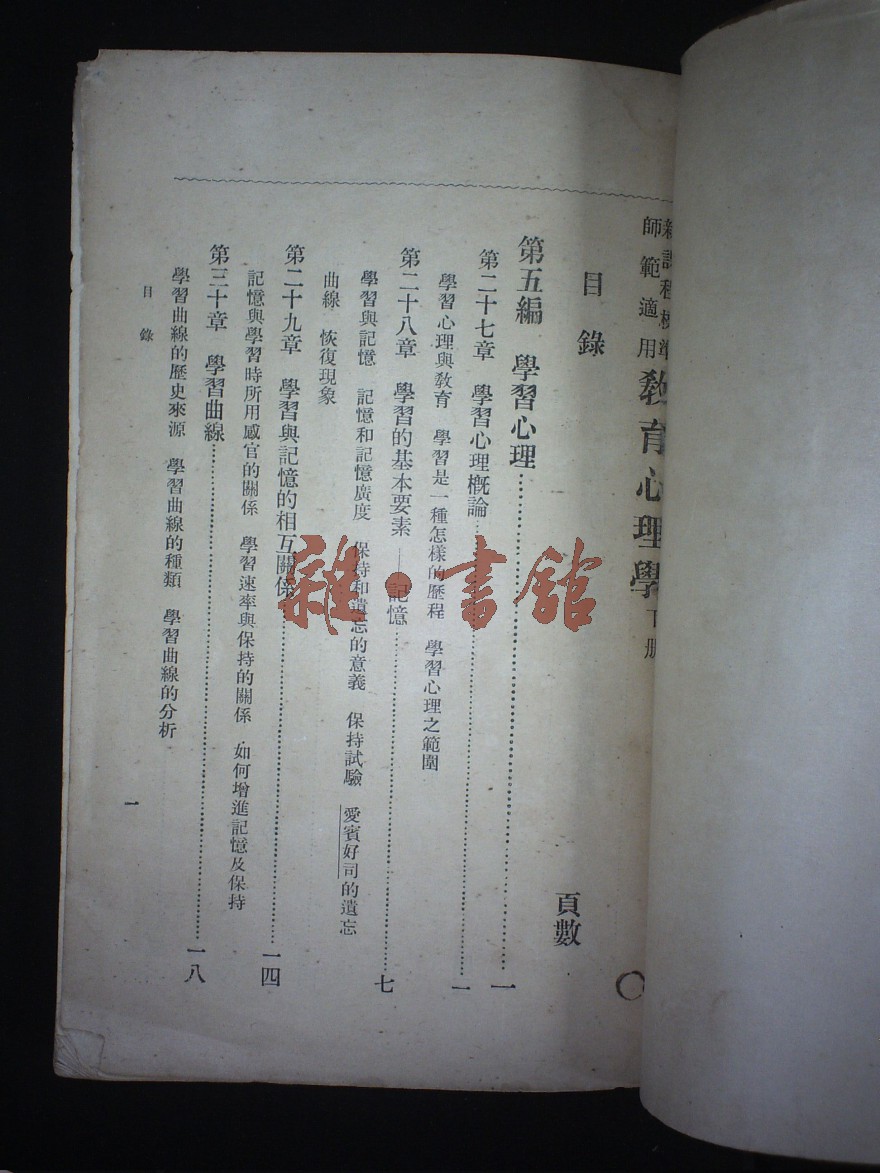 新課程標準
師範適用
教育心理學 下册
目錄
頁數
第五編 學習心理……一
第二十七章 學習心理概論……一
學習心理與教育 學習是一種怎樣的歷程 學習心理之範圍
第二十八章 學習的基本要素——記憶……七
學習與記憶 記憶和記憶廣度 保持和遺忘的意義 保持試驗 愛賓好司的遺忘
曲線 恢復現象
第二十九章 學習與記憶的相互關係……一四
記憶與學習時所用感官的關係 學習速率與保持的關係 如何增進記憶及保持
第三十章 學習曲線……一八
學習曲線的歷史來源 學習曲線的種類 學習曲線的分析
目錄
一
雜·書館